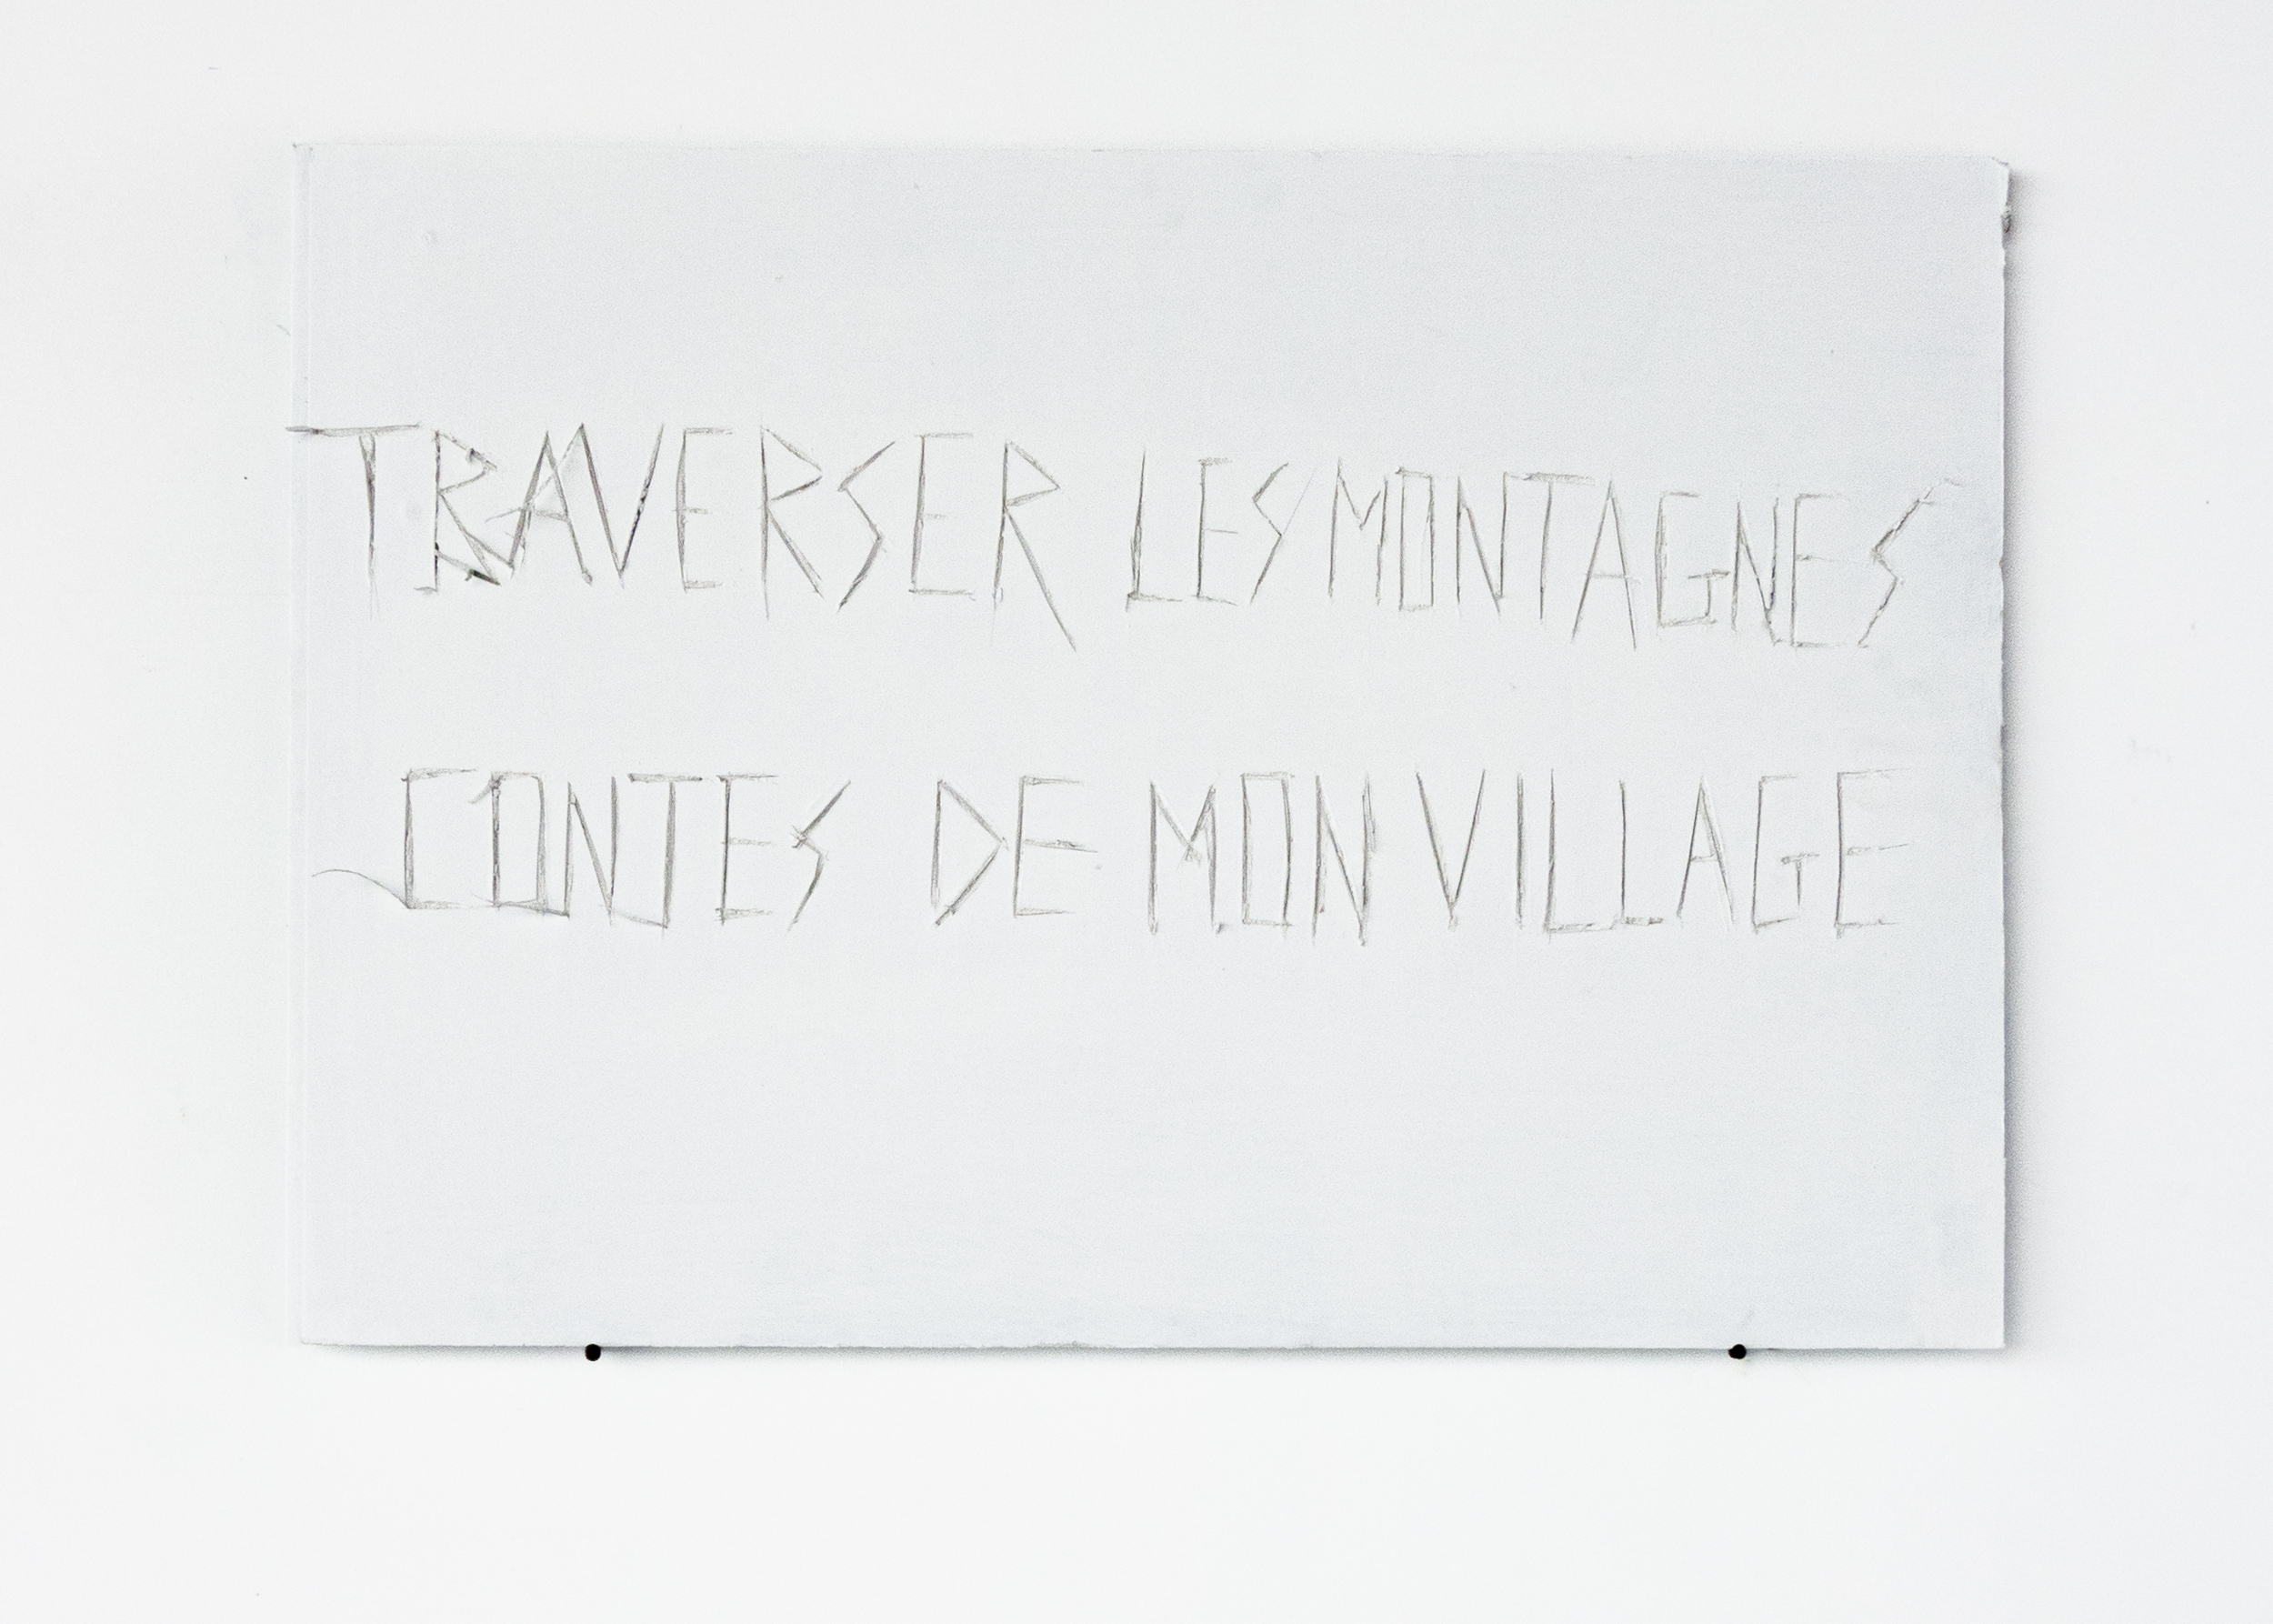 TRAVERSER LES MONTAGNES
CONTES DE MON VILLAGE